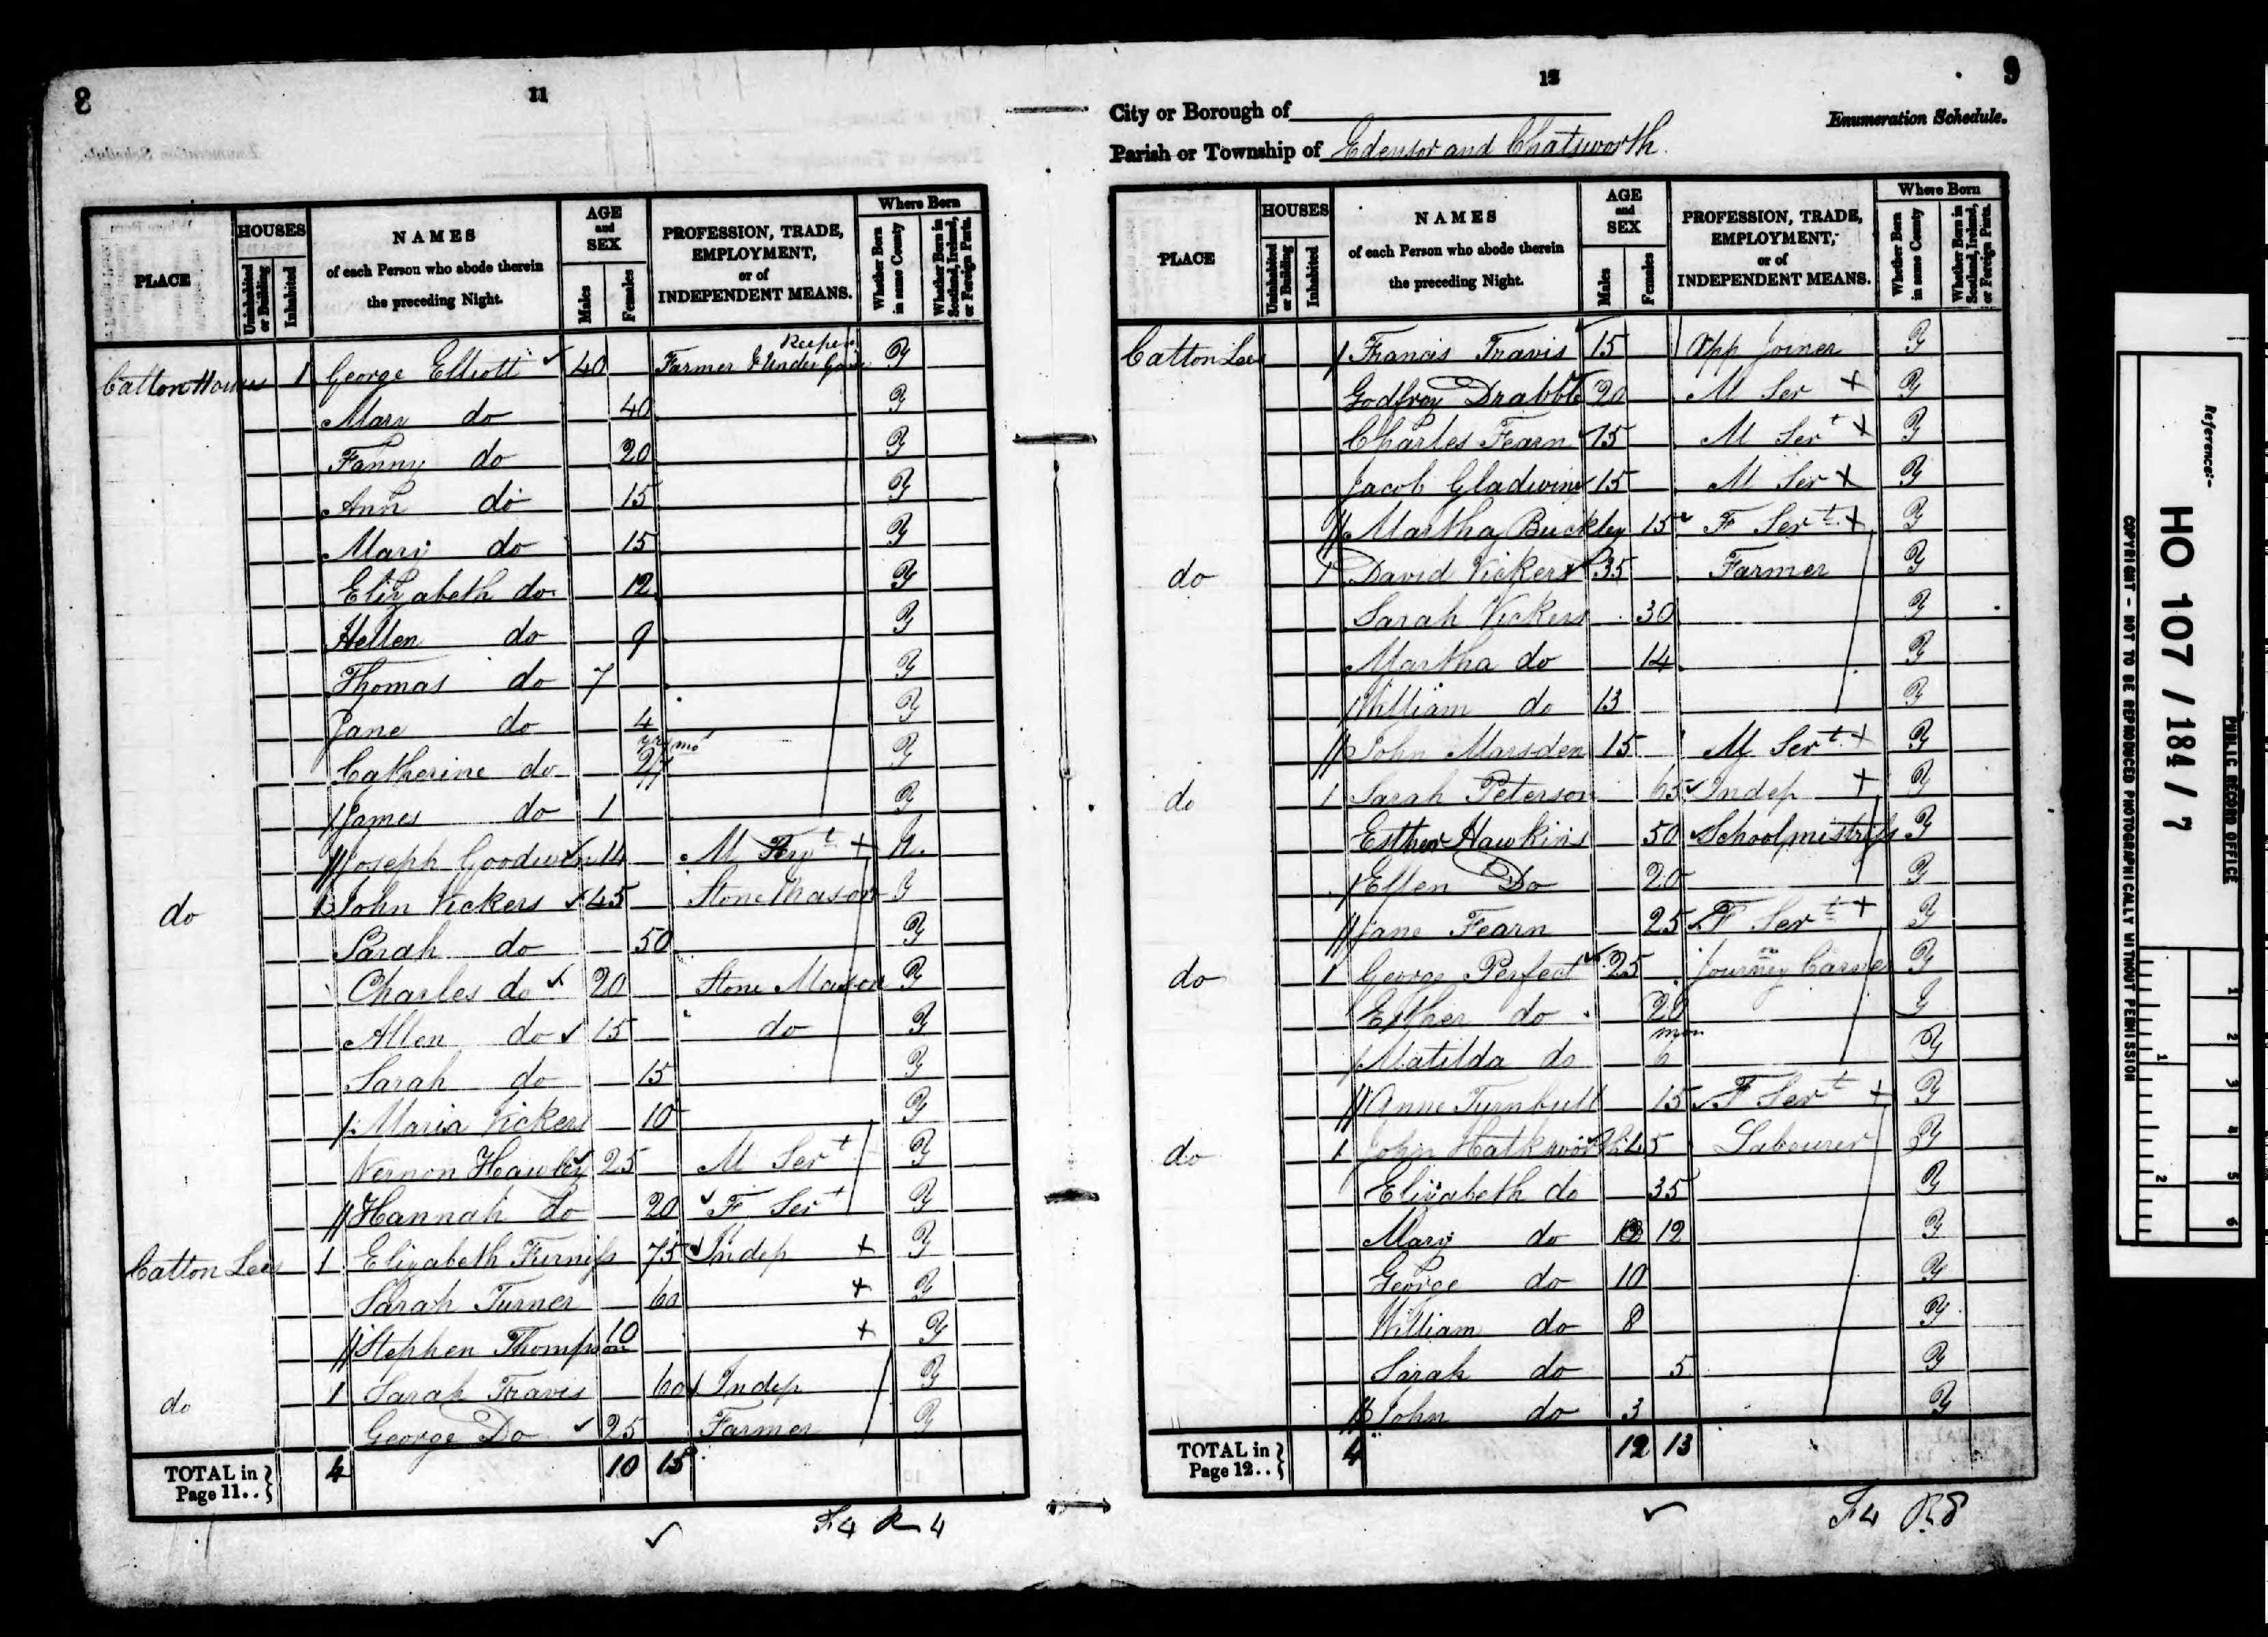 8
11
PLACE
HOUSES
Uninhabited or Building
Inhabited
NAMES
of each Person who abode therein
the preceding Night.
AGE and SEX
Males
Females
PROFESSION, TRADE,
EMPLOYMENT,
or of
INDEPENDENT MEANS.
Where Born
Whether Born in same County
Whether Born in Scotland, Ireland, or Foreign Parts.
Keeper
Catton House 1 George Elliott 40 Farmer & Under Game Y
Mary do 40 Y
Fanny do 20 Y
Ann do 15 Y
Mary do 15 Y
Elizabeth do 12 Y
Hellen do 9 Y
Thomas do 7 Y
Jane do 4 Y
Catherine do Y
James do 1 Y
Joseph Goodwin 14 M N.
do 1 John Vickers 45 Stone Mason Y
Sarah do 50 Y
Charles do 20 Stone Mason Y
Allen do 15 do Y
Sarah do 15 Y
Maria Vickers 10 Y
Vernon Hawley 25 M Sert Y
Hannah do 20 F Sert Y
Catton Lees 1 Elizabeth Furniss 75 Indep + Y
Sarah Turner 60 + Y
Stephen Thompson 10 + Y
do 1 Sarah Travis 60 Indep Y
George Do 25 Farmer Y
TOTAL in Page 11.. 4 10 15
F4 R 4
12
9
City or Borough of
Enumeration Schedule.
Parish or Township of Edensor and Chatsworth
PLACE
HOUSES
Uninhabited or Building
Inhabited
NAMES
of each Person who abode therein
the preceding Night.
AGE and SEX
Males
Females
PROFESSION, TRADE,
EMPLOYMENT,
or of
INDEPENDENT MEANS.
Where Born
Whether Born in same County
Whether Born in Scotland, Ireland, or Foreign Parts.
Catton Lees Francis Travis 15 App Joiner Y
Godfrey Drabble 20 M Ser + Y
Charles Fearn 15 M Sert + Y
Jacob Gladwine 15 M Ser + Y
Martha Buckley 15 F Sert + Y
do 1 David Vickers 35 Farmer Y
Sarah Vickers 30 Y
Martha do 14 Y
William do 13 Y
John Marsden 15 M Sert + Y
do 1 Sarah Peterson 65 Indep + Y
Esther Hawkins 50 Schoolmistress Y
Ellen Do 20 Y
Jane Fearn 25 F Sert + Y
do 1 George Perfect 25 Journey Carver Y
Esther do 20 Y
Matilda do 6 mon Y
Anne Turnbull 15 F Sert + Y
do 1 John 45 Labourer Y
Elizabeth do 35 Y
Mary do 12 Y
George do 10 Y
William do 8 Y
Sarah do 5 Y
John do 3 Y
TOTAL in Page 12.. 4 12 13
F4 R8
PUBLIC RECORD OFFICE
Reference:-
HO 107 / 184 / 7
COPYRIGHT - NOT TO BE REPRODUCED PHOTOGRAPHICALLY WITHOUT PERMISSION
1
2
3
4
5
6
1
2